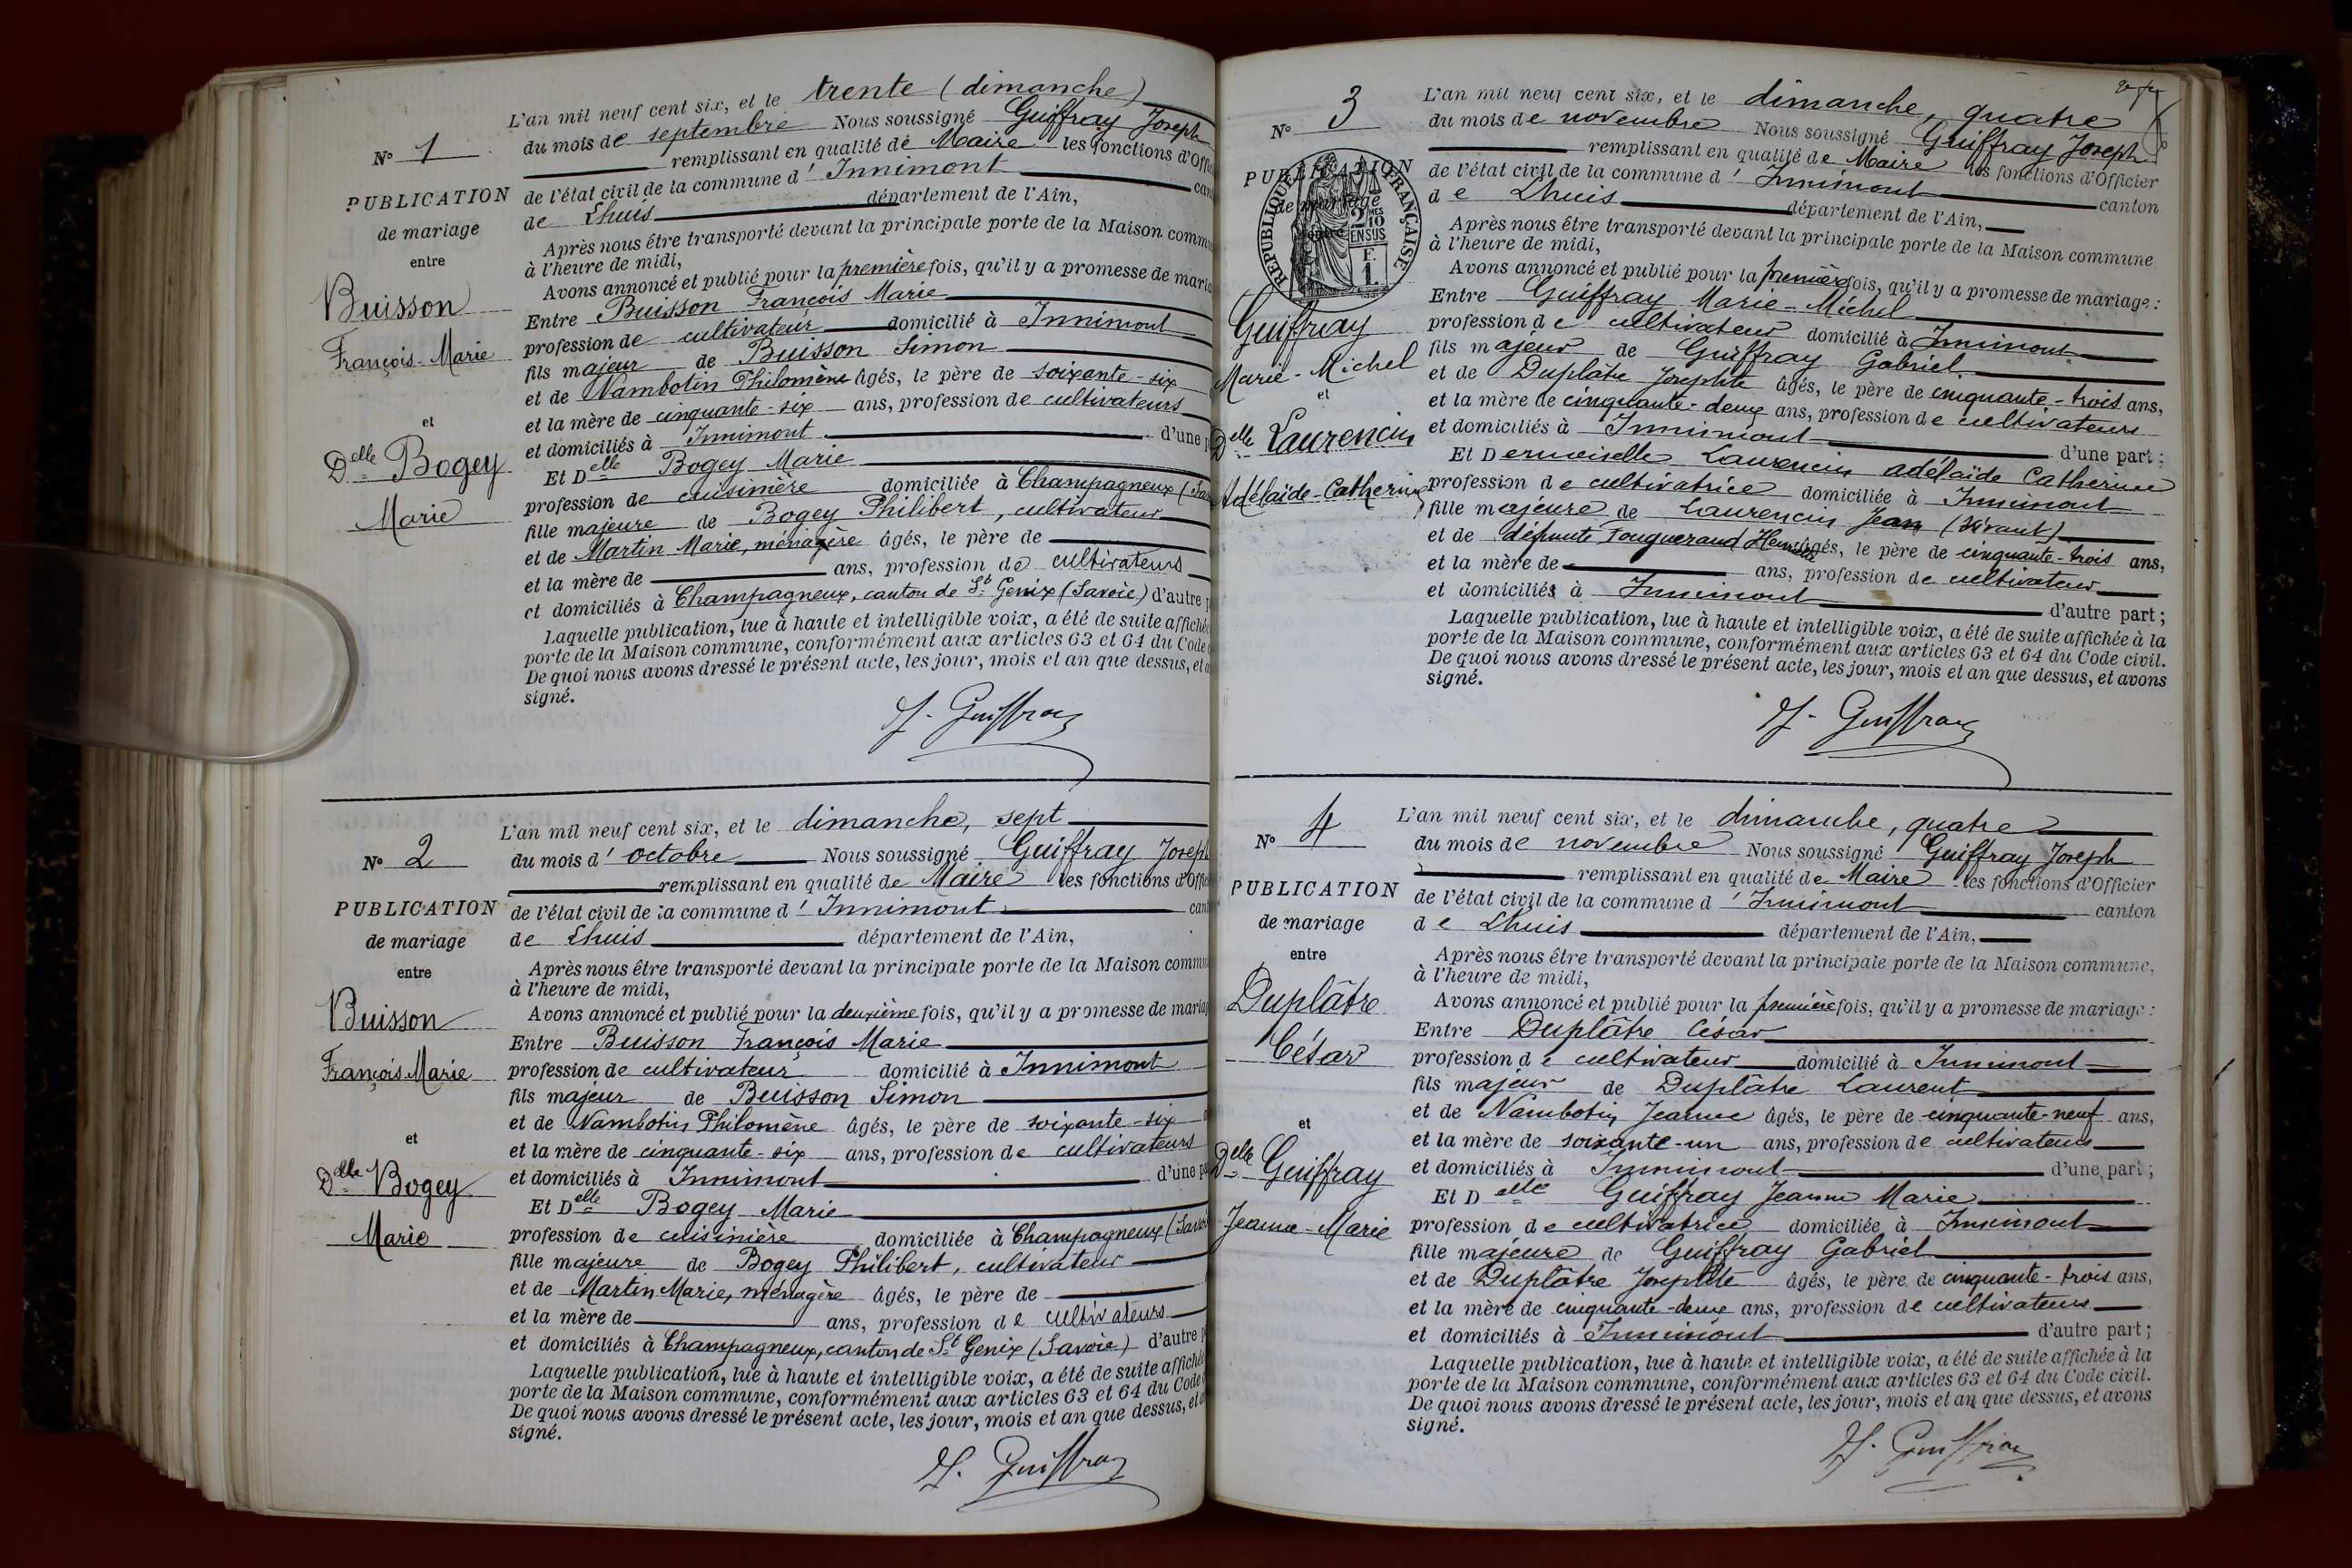 N° 1
PUBLICATION
de mariage
entre
Buisson
François-Marie
et
Delle Bogey
Marie
L'an mil neuf cent six, et le trente (dimanche)
du mois de septembre Nous soussigné Guiffray Joseph
remplissant en qualité de Maire les fonctions d'Offi
de l'état civil de la commune d' Innimont can
de Lhuis département de l'Ain,
Après nous être transporté devant la principale porte de la Maison comm
à l'heure de midi,
Avons annoncé et publié pour la première fois, qu'il y a promesse de maria
Entre Buisson François Marie
profession de cultivateur domicilié à Innimont
fils majeur de Buisson Simon
et de Nambotin Philomène âgés, le père de soixante-six
et la mère de cinquante-six ans, profession de cultivateurs
et domiciliés à Innimont d'une p
Et Delle Bogey Marie
profession de cuisinière domiciliée à Champagneux (Sav
fille majeure de Bogey Philibert, cultivateur
et de Martin Marie, ménagère âgés, le père de
et la mère de ans, profession de cultivateurs
et domiciliés à Champagneux, canton de St Genix (Savoie) d'autre p
Laquelle publication, lue à haute et intelligible voix, a été de suite affichée
porte de la Maison commune, conformément aux articles 63 et 64 du Code c
De quoi nous avons dressé le présent acte, les jour, mois et an que dessus, et a
signé.
J. Guiffray
N° 2
PUBLICATION
de mariage
entre
Buisson
François Marie
et
Delle Bogey
Marie
L'an mil neuf cent six, et le dimanche, sept
du mois d' octobre Nous soussigné Guiffray Joseph
remplissant en qualité de Maire les fonctions d'Offic
de l'état civil de la commune d' Innimont cant
de Lhuis département de l'Ain,
Après nous être transporté devant la principale porte de la Maison commu
à l'heure de midi,
Avons annoncé et publié pour la deuxième fois, qu'il y a promesse de mariag
Entre Buisson François Marie
profession de cultivateur domicilié à Innimont
fils majeur de Buisson Simon
et de Nambotin Philomène âgés, le père de soixante-six
et la mère de cinquante-six ans, profession de cultivateurs
et domiciliés à Innimont d'une pa
Et Delle Bogey Marie
profession de cuisinière domiciliée à Champagneux (Savoie
fille majeure de Bogey Philibert, cultivateur
et de Martin Marie, ménagère âgés, le père de
et la mère de ans, profession de cultivateurs
et domiciliés à Champagneux, canton de St Genix (Savoie) d'autre p
Laquelle publication, lue à haute et intelligible voix, a été de suite affichée
porte de la Maison commune, conformément aux articles 63 et 64 du Code c
De quoi nous avons dressé le présent acte, les jour, mois et an que dessus, et a
signé.
J. Guiffray
N° 3
PUBLICATION
de mariage
entre
RÉPUBLIQUE FRANÇAISE
2 MES 10 EN SUS
F. 1.
Guiffray
Marie-Michel
et
Delle Laurencin
Adélaïde-Catherine
L'an mil neuf cent six, et le dimanche, quatre
du mois de novembre Nous soussigné Guiffray Joseph
remplissant en qualité de Maire les fonctions d'Officier
de l'état civil de la commune d' Innimont canton
de Lhuis département de l'Ain,
Après nous être transporté devant la principale porte de la Maison commune
à l'heure de midi,
Avons annoncé et publié pour la première fois, qu'il y a promesse de mariage :
Entre Guiffray Marie-Michel
profession de cultivateur domicilié à Innimont
fils majeur de Guiffray Gabriel
et de Duplâtre Josephte âgés, le père de cinquante-trois ans,
et la mère de cinquante-deux ans, profession de cultivateurs
et domiciliés à Innimont d'une part ;
Et Demoiselle Laurencin Adélaïde Catherine
profession de cultivatrice domiciliée à Innimont
fille majeure de Laurencin Jean (vivant)
et de défunte Fouguerand âgés, le père de cinquante-trois ans,
et la mère de ans, profession de cultivateur
et domiciliés à Innimont d'autre part ;
Laquelle publication, lue à haute et intelligible voix, a été de suite affichée à la
porte de la Maison commune, conformément aux articles 63 et 64 du Code civil.
De quoi nous avons dressé le présent acte, les jour, mois et an que dessus, et avons
signé.
J. Guiffray
N° 4
PUBLICATION
de mariage
entre
Duplâtre
César
et
Delle Guiffray
Jeanne-Marie
L'an mil neuf cent six, et le dimanche, quatre
du mois de novembre Nous soussigné Guiffray Joseph
remplissant en qualité de Maire les fonctions d'Officier
de l'état civil de la commune d' Innimont canton
de Lhuis département de l'Ain,
Après nous être transporté devant la principale porte de la Maison commune,
à l'heure de midi,
Avons annoncé et publié pour la première fois, qu'il y a promesse de mariage :
Entre Duplâtre César
profession de cultivateur domicilié à Innimont
fils majeur de Duplâtre Laurent
et de Nambotin Jeanne âgés, le père de cinquante-neuf ans,
et la mère de soixante-un ans, profession de cultivateurs
et domiciliés à Innimont d'une part ;
Et Delle Guiffray Jeanne Marie
profession de cultivatrice domiciliée à Innimont
fille majeure de Guiffray Gabriel
et de Duplâtre Josephte âgés, le père de cinquante-trois ans,
et la mère de cinquante-deux ans, profession de cultivateurs
et domiciliés à Innimont d'autre part ;
Laquelle publication, lue à haute et intelligible voix, a été de suite affichée à la
porte de la Maison commune, conformément aux articles 63 et 64 du Code civil.
De quoi nous avons dressé le présent acte, les jour, mois et an que dessus, et avons
signé.
J. Guiffray